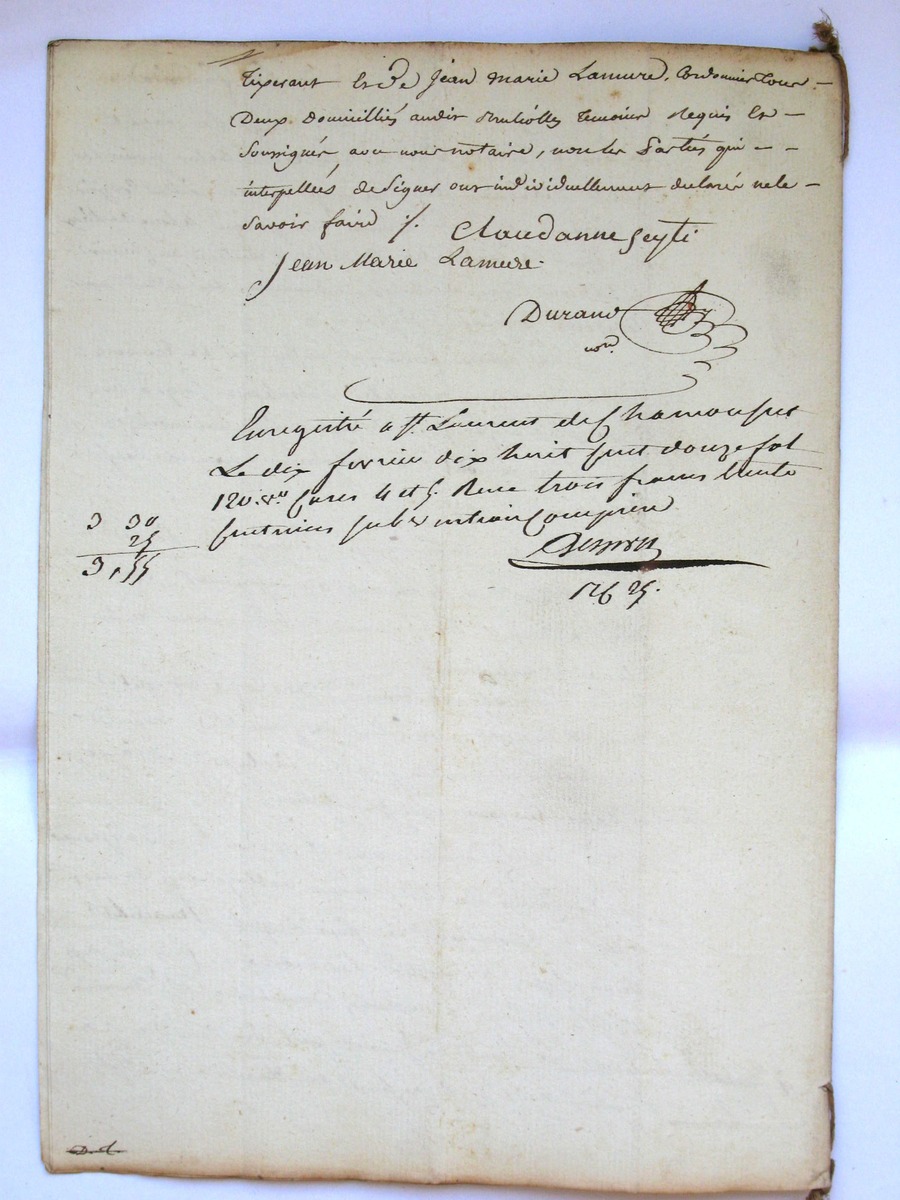 Tixerant Et Sr Jean Marie Lamure, Cordonnier tous –
Deux domicilliés audit Brulliolles Temoins Requis Et –
Soussignés avec nous notaire, non les Parties qui – –
interpellées de Signer ont individuellement declaré ne le –
Savoir faire ./.
Claudanne Seyti
Jean Marie Lamure.
Durand
nore.
Enregistré a St. Laurent de Chamousset
Le dix fevrier dix huit cent douze fol
120 vo Cases 4 et 5. Recu trois francs trente
centimes subvention Comprise
3 30
25
3,55